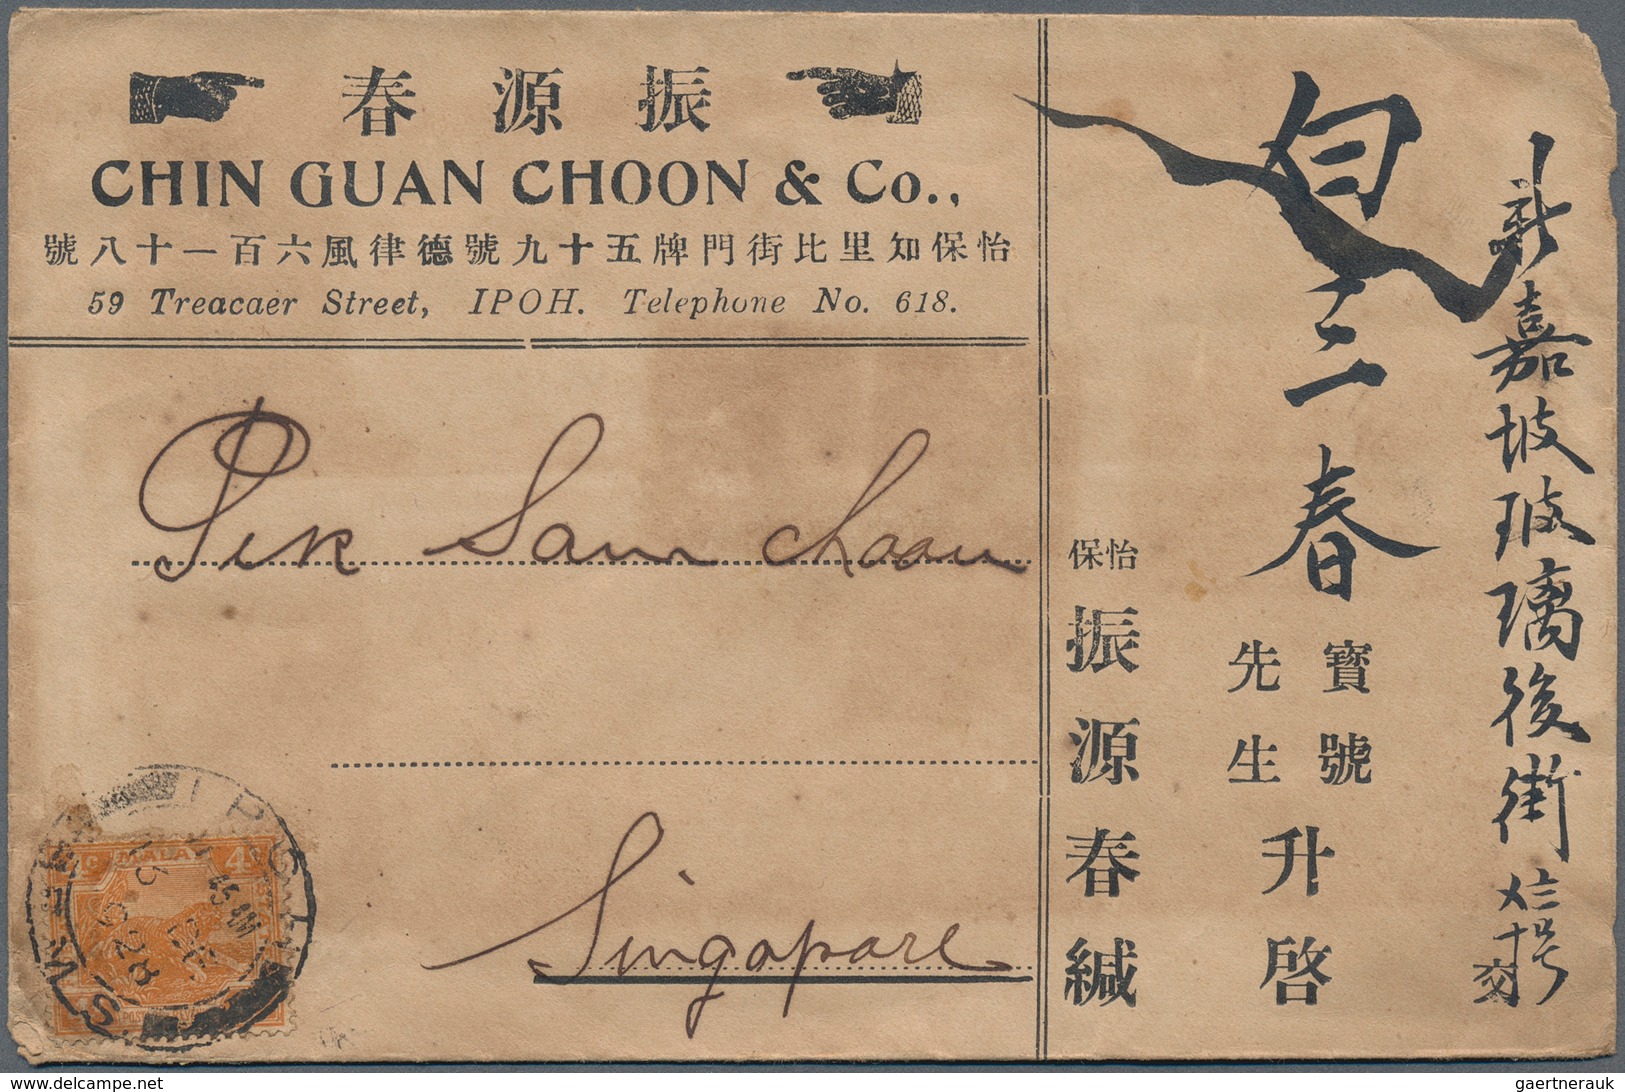 春源振
CHIN GUAN CHOON & Co.,
號八十一百六風律德號九十五牌門街比里知保怡
59 Treacaer Street, IPOH. Telephone No. 618.
Pek Sam Choon
Singapore
IPOH
F.M.S.
MALAY
4c
新嘉坡玻璃後街
交
白三春
寶號
先生
升啓
保怡
振源春緘
www.delcampe.net
gaertnerauk